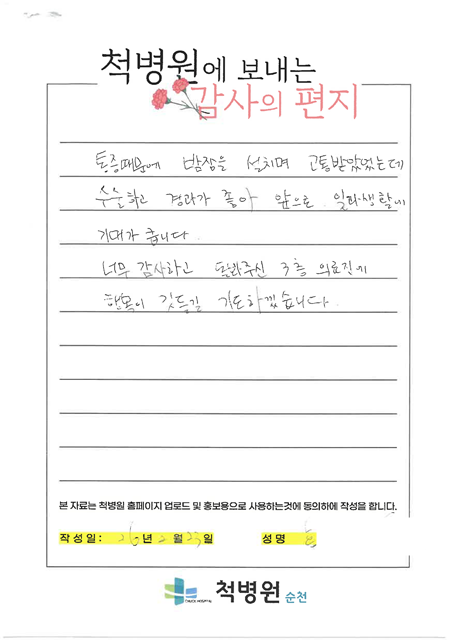 척병원에 보내는
감사의 편지
통증때문에 밤잠을 설치며 고통받았었는데
수술하고 경과가 좋아 앞으로 일과생활에
기대가 큽니다.
너무 감사하고 돌봐주신 3층 의료진께
행복이 깃들길 기도하겠습니다.
본 자료는 척병원 홈페이지 업로드 및 홍보용으로 사용하는것에 동의하에 작성을 합니다.
작성일: 26년 2월 23일 성명
척병원 순천